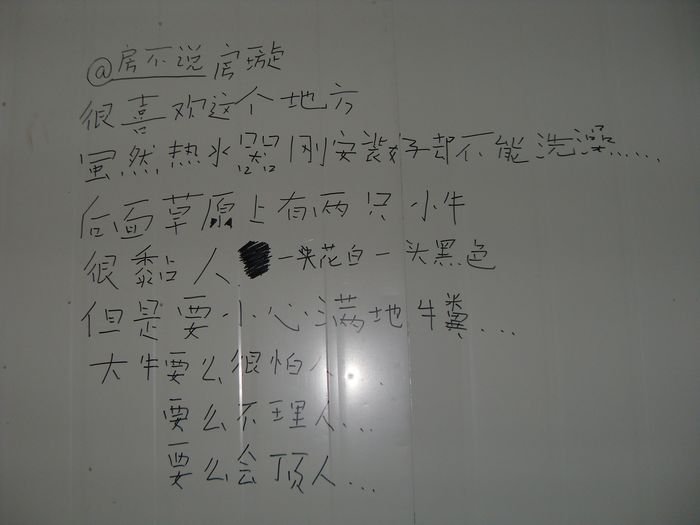 @房不说房璇
很喜欢这个地方
虽然热水器刚安装好却不能洗澡.....
后面草原上有两只小牛
很黏人 一头花白一头黑色
但是要小心满地牛粪...
大牛要么很怕人...
要么不理人...
要么会顶人...